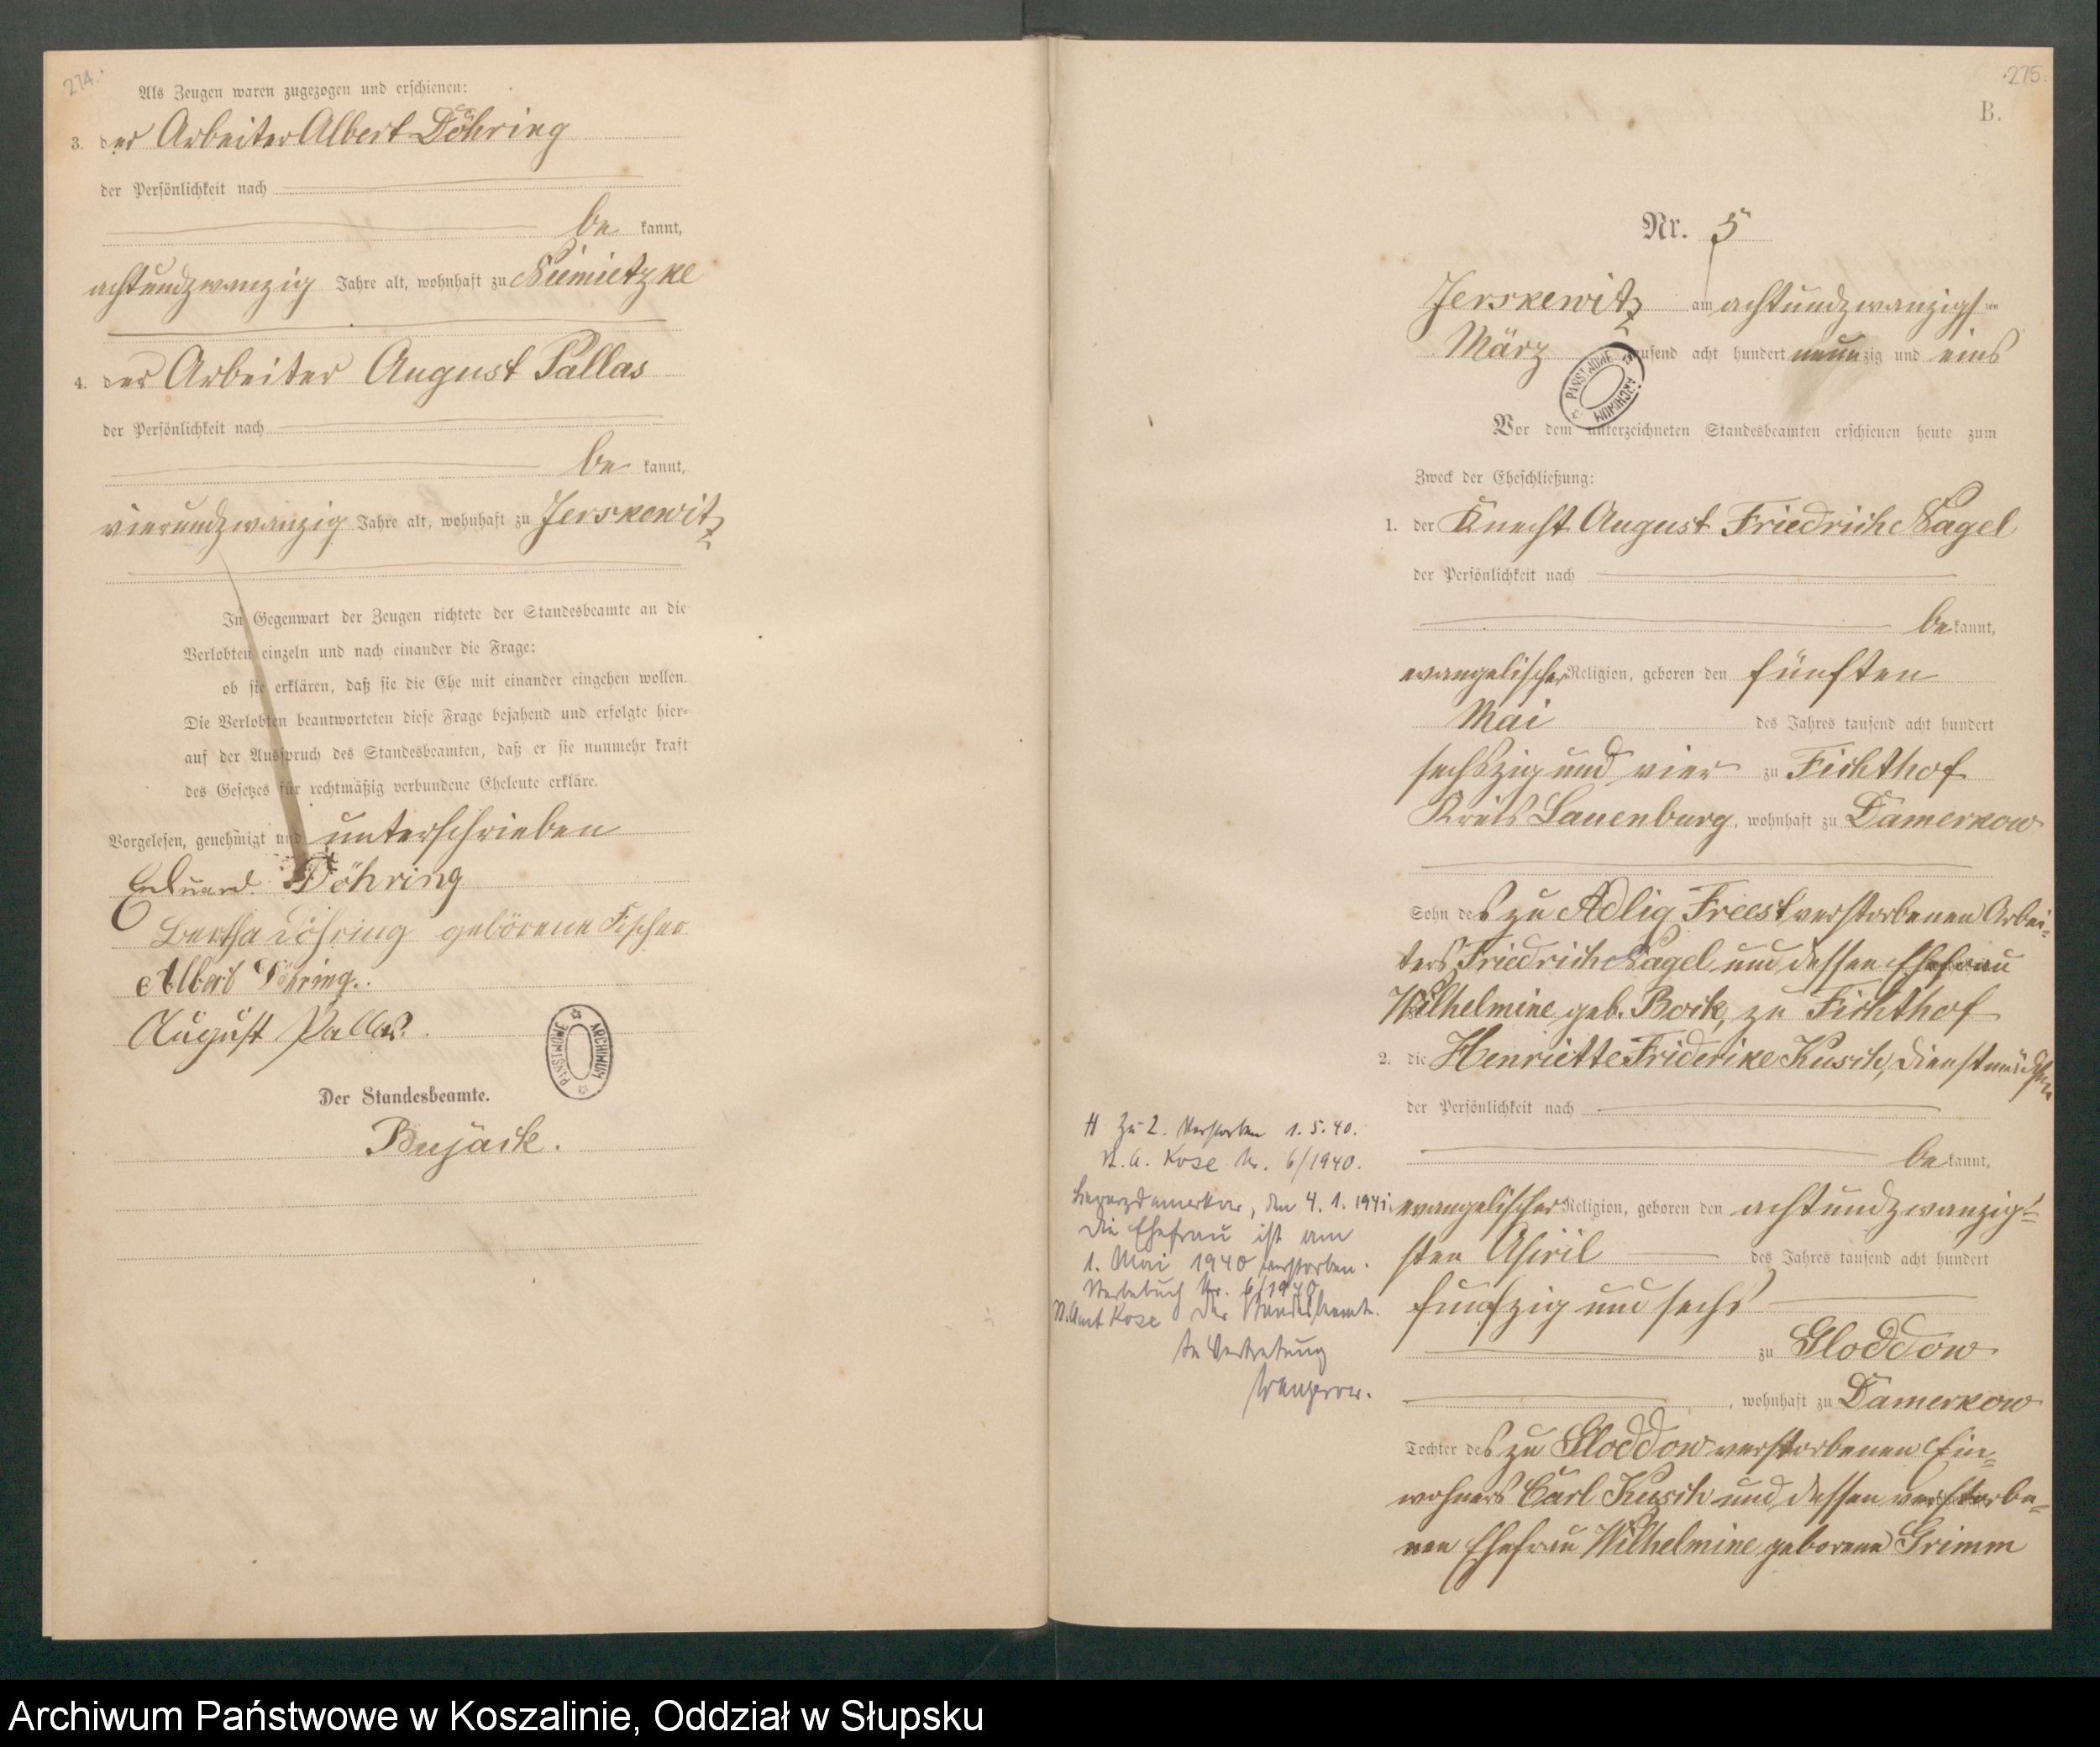 274.
Als Zeugen waren zugezogen und erschienen:
3. der Arbeiter Albert Döhring
der Persönlichkeit nach
be kannt,
achtundzwanzig Jahre alt, wohnhaft zu Niemietzke
4. der Arbeiter August Pallas
der Persönlichkeit nach
be kannt,
vierundzwanzig Jahre alt, wohnhaft zu Jerskewitz
In Gegenwart der Zeugen richtete der Standesbeamte an die
Verlobten einzeln und nach einander die Frage:
ob sie erklären, daß sie die Ehe mit einander eingehen wollen.
Die Verlobten beantworteten diese Frage bejahend und erfolgte hier=
auf der Ausspruch des Standesbeamten, daß er sie nunmehr kraft
des Gesetzes für rechtmäßig verbundene Eheleute erkläre.
Vorgelesen, genehmigt und unterschrieben
Eduard Döhring
Bertha Döhring geborene Fischer
Albert Döhring.
August Pallas.
PAŃSTWOWE ARCHIWUM
Der Standesbeamte.
Bujack.
275.
B.
Nr. 5
Jerskewitz am achtundzwanzigsten
März tausend acht hundert neunzig und eins
PAŃSTWOWE ARCHIWUM
Vor dem unterzeichneten Standesbeamten erschienen heute zum
Zweck der Eheschließung:
1. der Knecht August Friedrich Nagel
der Persönlichkeit nach
be kannt,
evangelischer Religion, geboren den fünften
Mai des Jahres tausend acht hundert
sechszig und vier zu Fichthof
Kreis Lauenburg, wohnhaft zu Damerkow
Sohn des zu Adlig Freest verstorbenen Arbei=
ters Friedrich Nagel und dessen Ehefrau
Wilhelmine geb. Bock, zu Fichthof
2. die Henriette Friderike Kusch, Dienstmädchen
der Persönlichkeit nach
be kannt,
evangelischer Religion, geboren den achtundzwanzig=
sten April des Jahres tausend acht hundert
fünfzig und sechs
zu Gloddow
, wohnhaft zu Damerkow
Tochter des zu Gloddow verstorbenen Ein=
wohners Carl Kusch und dessen verstorbe=
nen Ehefrau Wilhelmine geborene Grimm
H Zu 2. Verstorben 1.5.40.
St.A. Kose Nr. 6/1940.
, den 4.1.1941.
Die Ehefrau ist am
1. Mai 1940 verstorben.
Sterbebuch Nr. 6/1940
St.Amt Kose Der Standesbeamte.
In Vertretung
Archiwum Państwowe w Koszalinie, Oddział w Słupsku